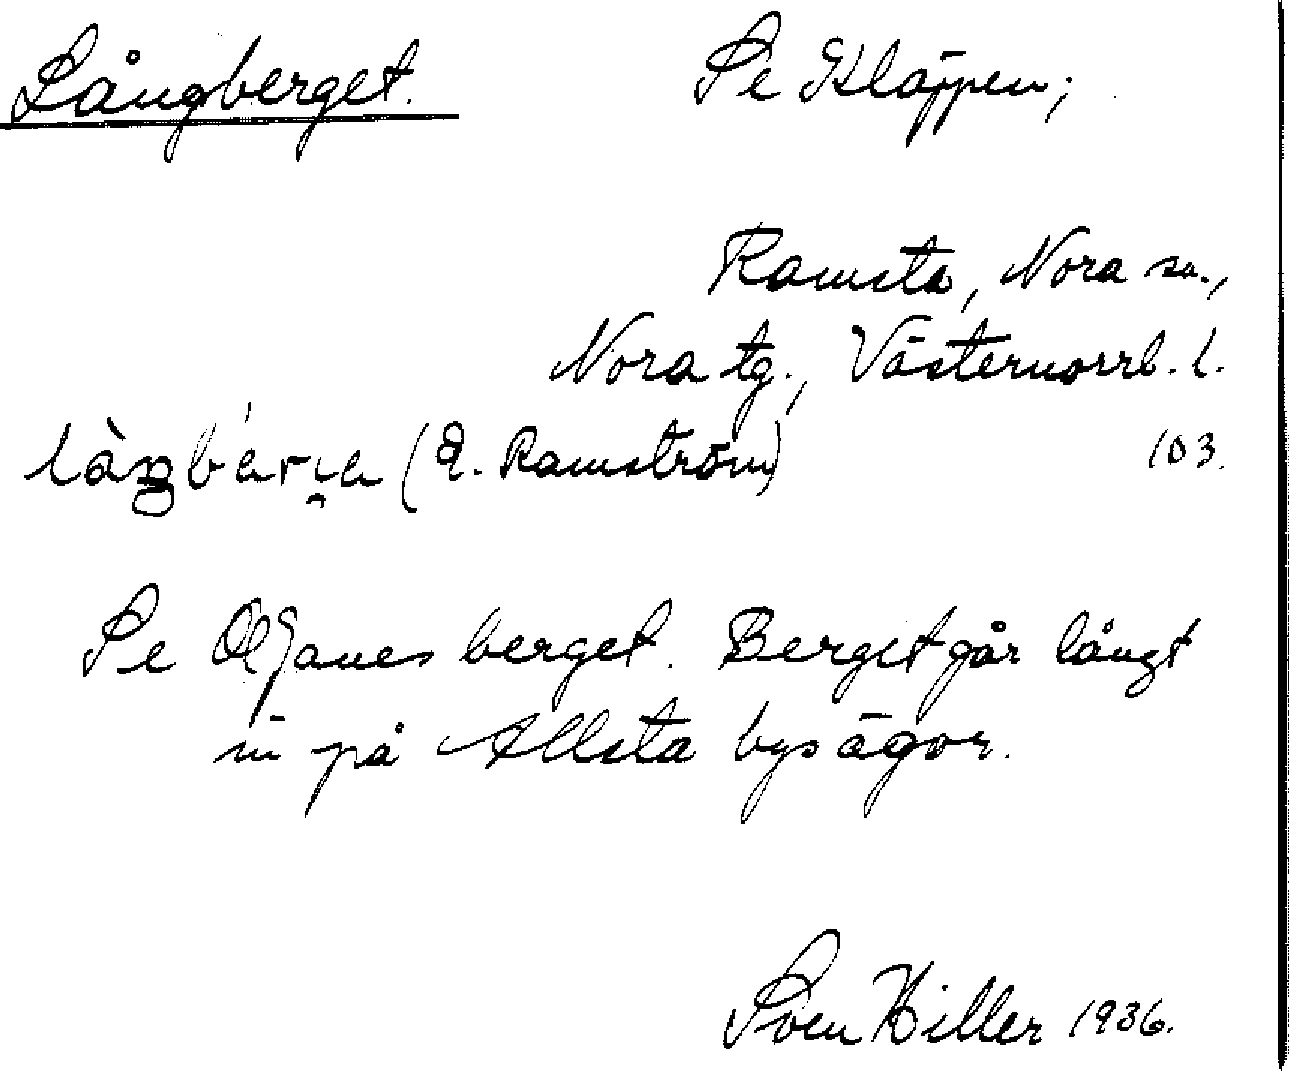 Långberget. Se Kläppen;
Ramsta, Nora sn.,
Nora tg., Västernorrl. l.
(E. Ramström) 103.
Se Ol Janes berget. Berget går långt
in på Allsta bys ägor.
Sven Hiller 1936.